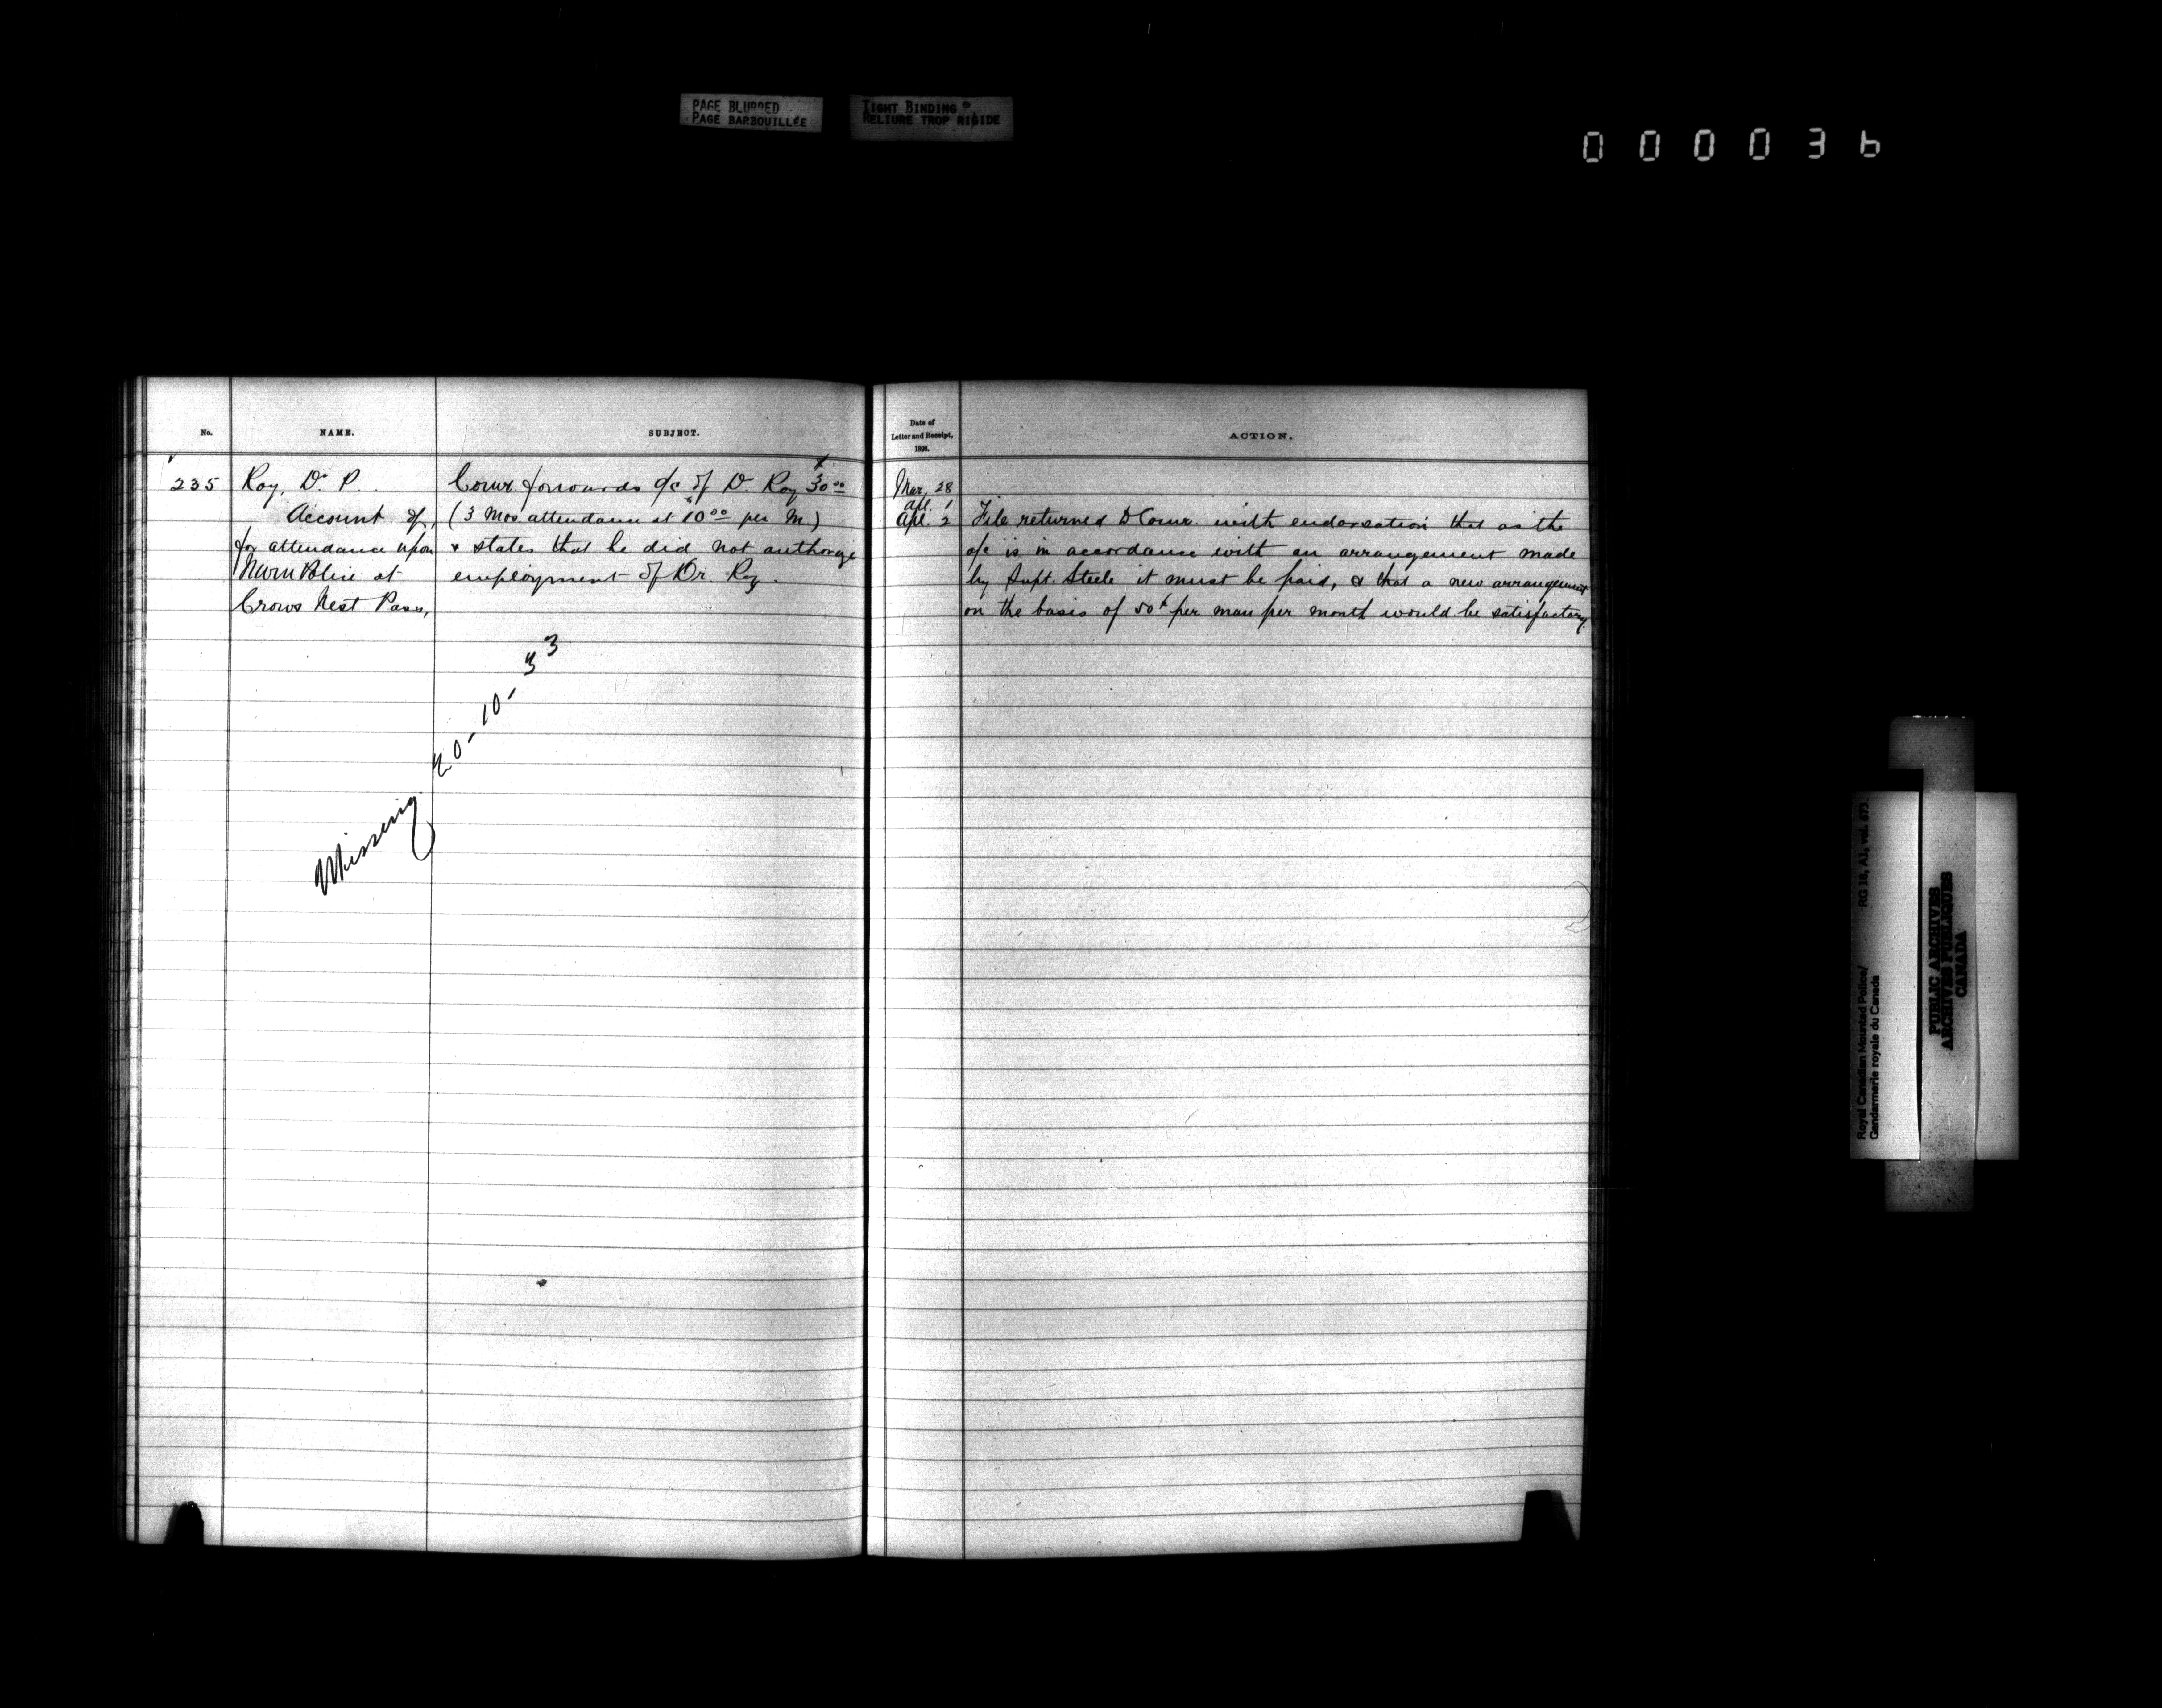 PAGE BLURRED
PAGE BARBOUILLÉE
TIGHT BINDING
RELIURE TROP RIGIDE
000036
No.
NAME.
SUBJECT.
Date of
Letter and Receipt,
1898.
ACTION.
235
Roy, Dr. P.
Account of,
for attendance upon
N W M Police at
Crows Nest Pass,
Comr. forwards a/c of Dr. Roy $30.00
(3 Mos attendance at $10.00 per M.)
& states that he did not authorize
employment of Dr Roy.
Mar. 28
Apl. 1
Apl. 2
File returned to Comr. with endorsation that as the
a/c is in accordance with an arrangement made
by Supt. Steele it must be paid, & that a new arrangement
on the basis of 50¢ per man per month would be satisfactory.
Missing 20-10-33
Royal Canadian Mounted Police/
Gendarmerie royale du Canada
RG 18, A1, vol. 673
PUBLIC ARCHIVES
ARCHIVES PUBLIQUES
CANADA